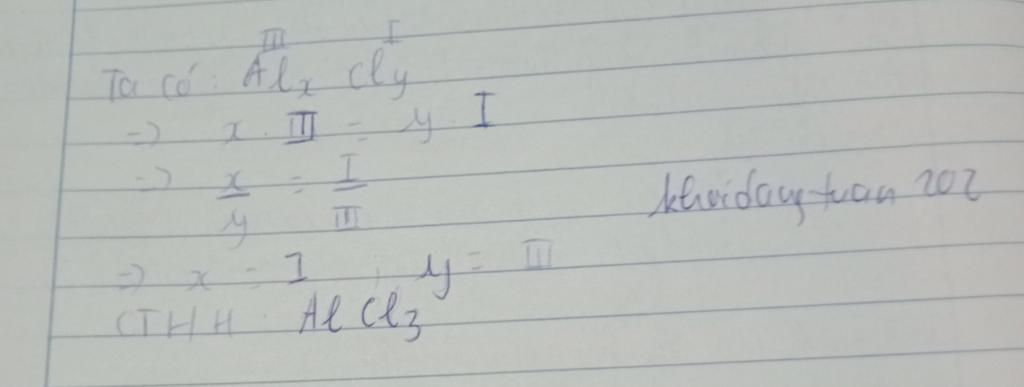 III I
Ta có: Alx Cly
=> x . III = y . I
=> x/y = I/III
khoidangtuan 202
=> x = I ; y = III
CTHH: AlCl3